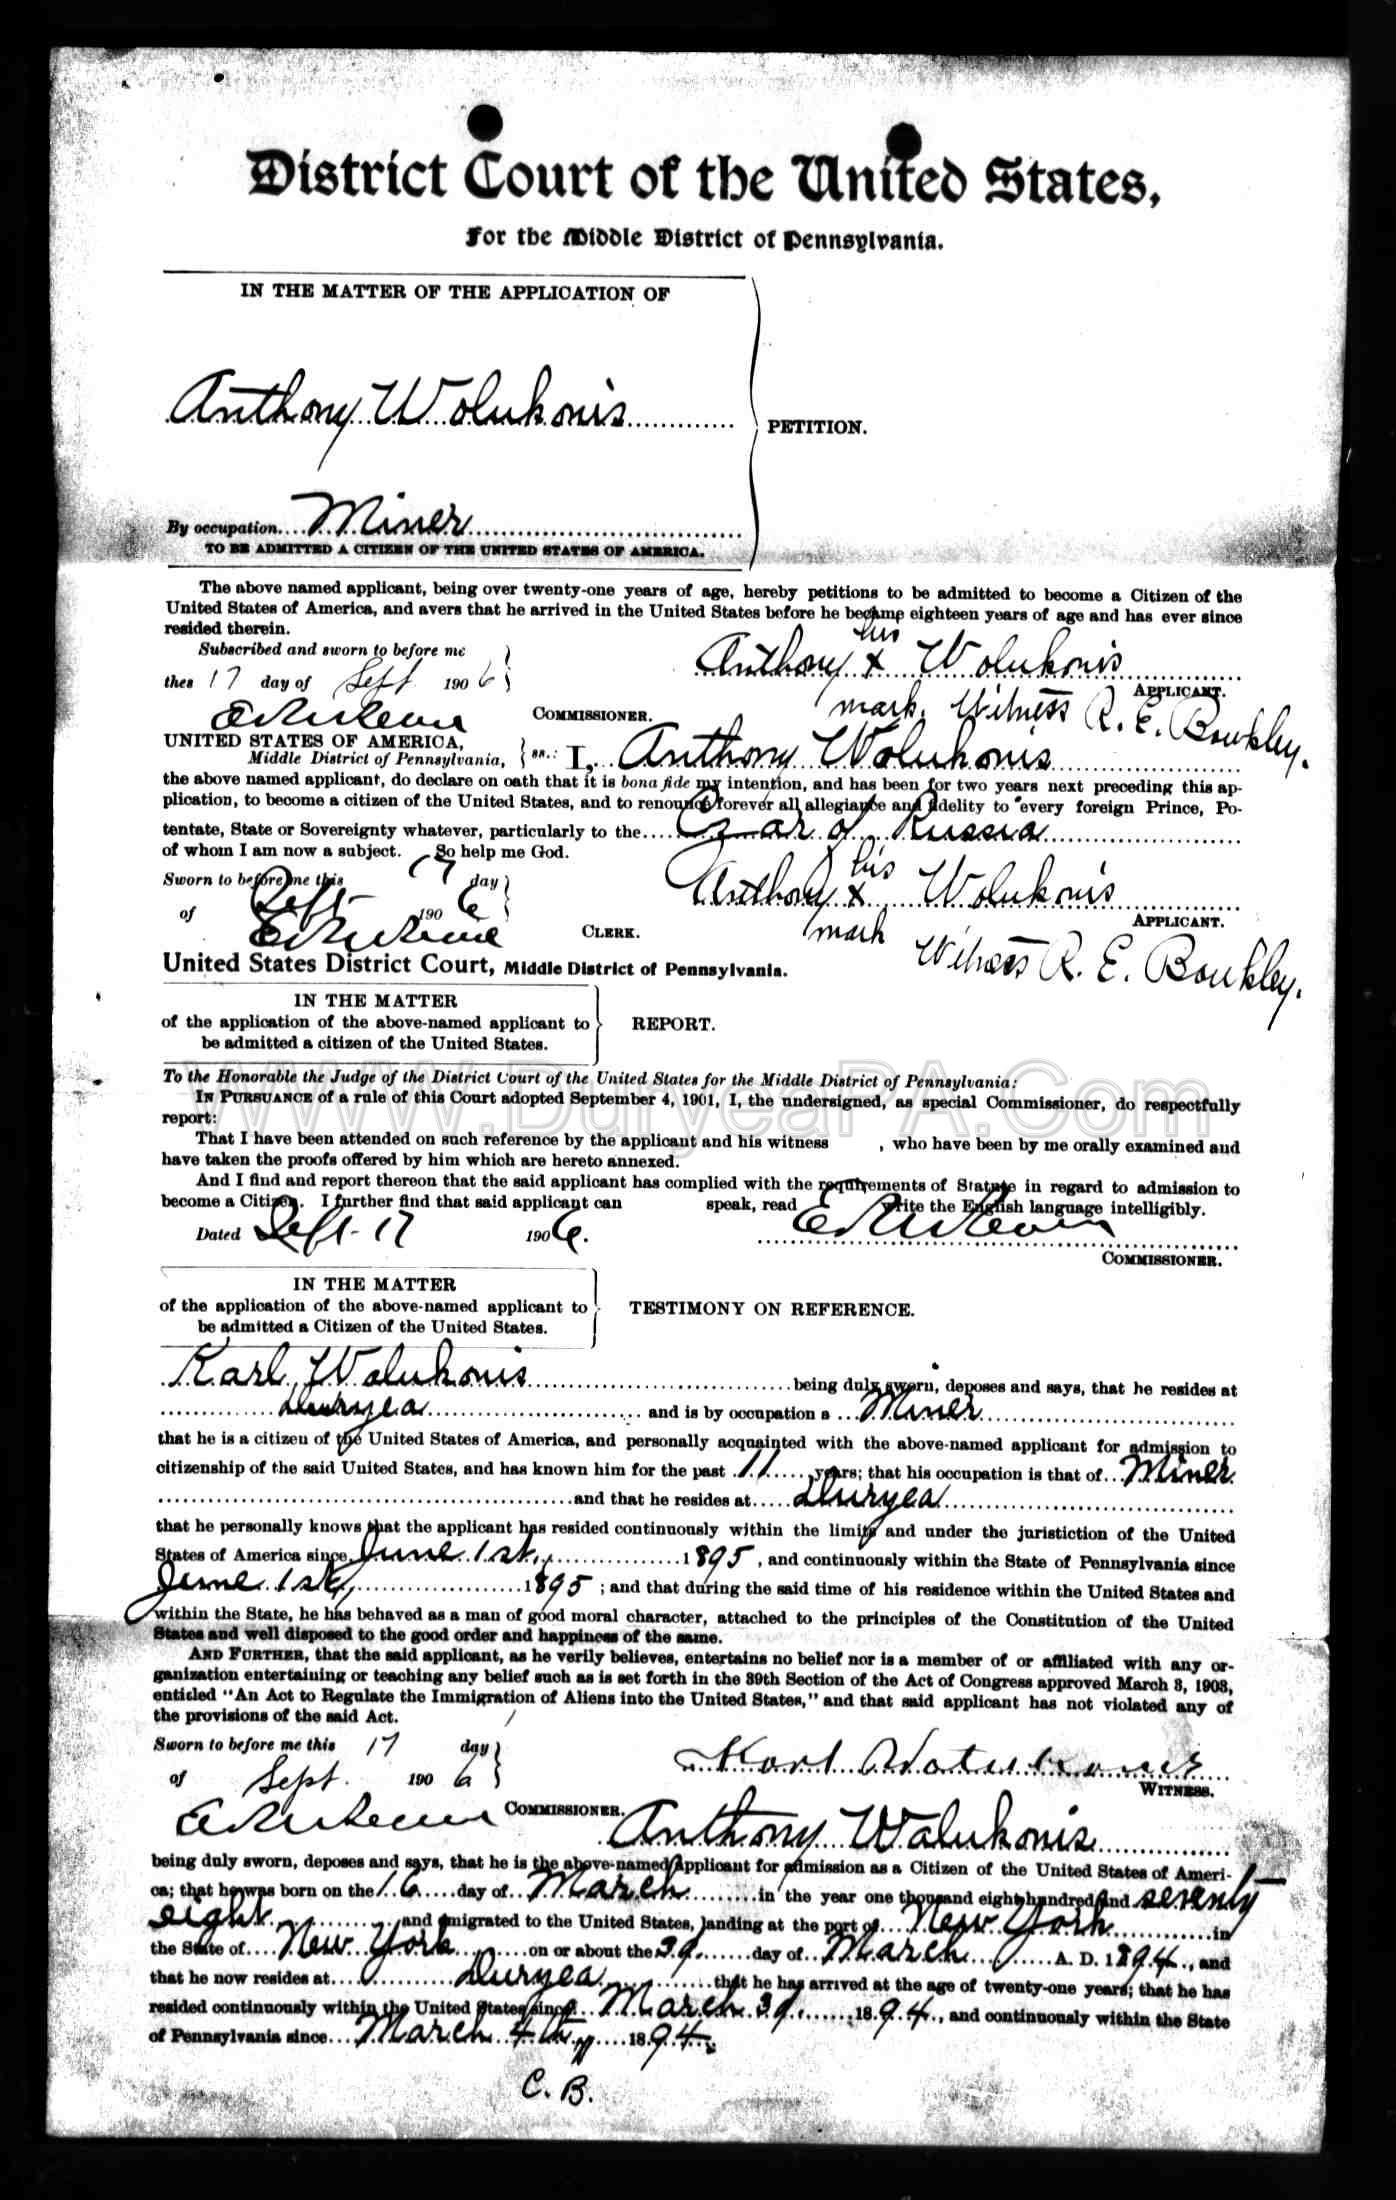 District Court of the United States,
For the Middle District of Pennsylvania.
IN THE MATTER OF THE APPLICATION OF
Anthony Wolukonis
PETITION.
By occupation Miner
TO BE ADMITTED A CITIZEN OF THE UNITED STATES OF AMERICA.
The above named applicant, being over twenty-one years of age, hereby petitions to be admitted to become a Citizen of the
United States of America, and avers that he arrived in the United States before he became eighteen years of age and has ever since
resided therein.
Subscribed and sworn to before me
thes 17 day of Sept 1906
his
Anthony x Wolukonis
APPLICANT.
mark. Witness R. E. Bowkley.
COMMISSIONER.
UNITED STATES OF AMERICA,
Middle District of Pennsylvania, ss.: I, Anthony Wolukonis
the above named applicant, do declare on oath that it is bona fide my intention, and has been for two years next preceding this ap-
plication, to become a citizen of the United States, and to renounce forever all allegiance and fidelity to every foreign Prince, Po-
tentate, State or Sovereignty whatever, particularly to the Czar of Russia
of whom I am now a subject. So help me God.
Sworn to before me this 17 day
of Sept 1906
his
Anthony x Wolukonis
APPLICANT.
mark Witness R. E. Bowkley.
CLERK.
United States District Court, Middle District of Pennsylvania.
IN THE MATTER
of the application of the above-named applicant to
be admitted a citizen of the United States.
REPORT.
To the Honorable the Judge of the District Court of the United States for the Middle District of Pennsylvania:
IN PURSUANCE of a rule of this Court adopted September 4, 1901, I, the undersigned, as special Commissioner, do respectfully
report:
WWW.DuryeaPA.Com
That I have been attended on such reference by the applicant and his witness , who have been by me orally examined and
have taken the proofs offered by him which are hereto annexed.
And I find and report thereon that the said applicant has complied with the requirements of Statute in regard to admission to
become a Citizen. I further find that said applicant can speak, read write the English language intelligibly.
Dated Sept 17 1906.
COMMISSIONER.
IN THE MATTER
of the application of the above-named applicant to
be admitted a Citizen of the United States.
TESTIMONY ON REFERENCE.
Karl Walukonis being duly sworn, deposes and says, that he resides at
Duryea and is by occupation a Miner
that he is a citizen of the United States of America, and personally acquainted with the above-named applicant for admission to
citizenship of the said United States, and has known him for the past 11 years; that his occupation is that of Miner
and that he resides at Duryea
that he personally knows that the applicant has resided continuously within the limits and under the juristiction of the United
States of America since June 1st, 1895, and continuously within the State of Pennsylvania since
June 1st, 1895; and that during the said time of his residence within the United States and
within the State, he has behaved as a man of good moral character, attached to the principles of the Constitution of the United
States and well disposed to the good order and happiness of the same.
AND FURTHER, that the said applicant, as he verily believes, entertains no belief nor is a member of or affiliated with any or-
ganization entertaining or teaching any belief such as is set forth in the 39th Section of the Act of Congress approved March 3, 1903,
entitled "An Act to Regulate the Immigration of Aliens into the United States," and that said applicant has not violated any of
the provisions of the said Act.
Sworn to before me this 17 day
of Sept. 1906
Karl
WITNESS.
COMMISSIONER.
Anthony Walukonis
being duly sworn, deposes and says, that he is the above-named applicant for admission as a Citizen of the United States of Ameri-
ca; that he was born on the 16 day of March in the year one thousand eight hundred and seventy
eight and emigrated to the United States, landing at the port of New York in
the State of New York on or about the 3d. day of March A. D. 1894, and
that he now resides at Duryea that he has arrived at the age of twenty-one years; that he has
resided continuously within the United States since March 3d. 1894, and continuously within the State
of Pennsylvania since March 4th, 1894.
C. B.